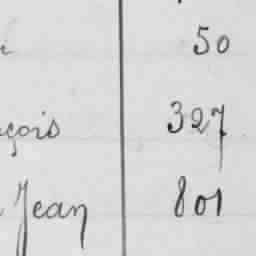 50
çois 327
Jean 801